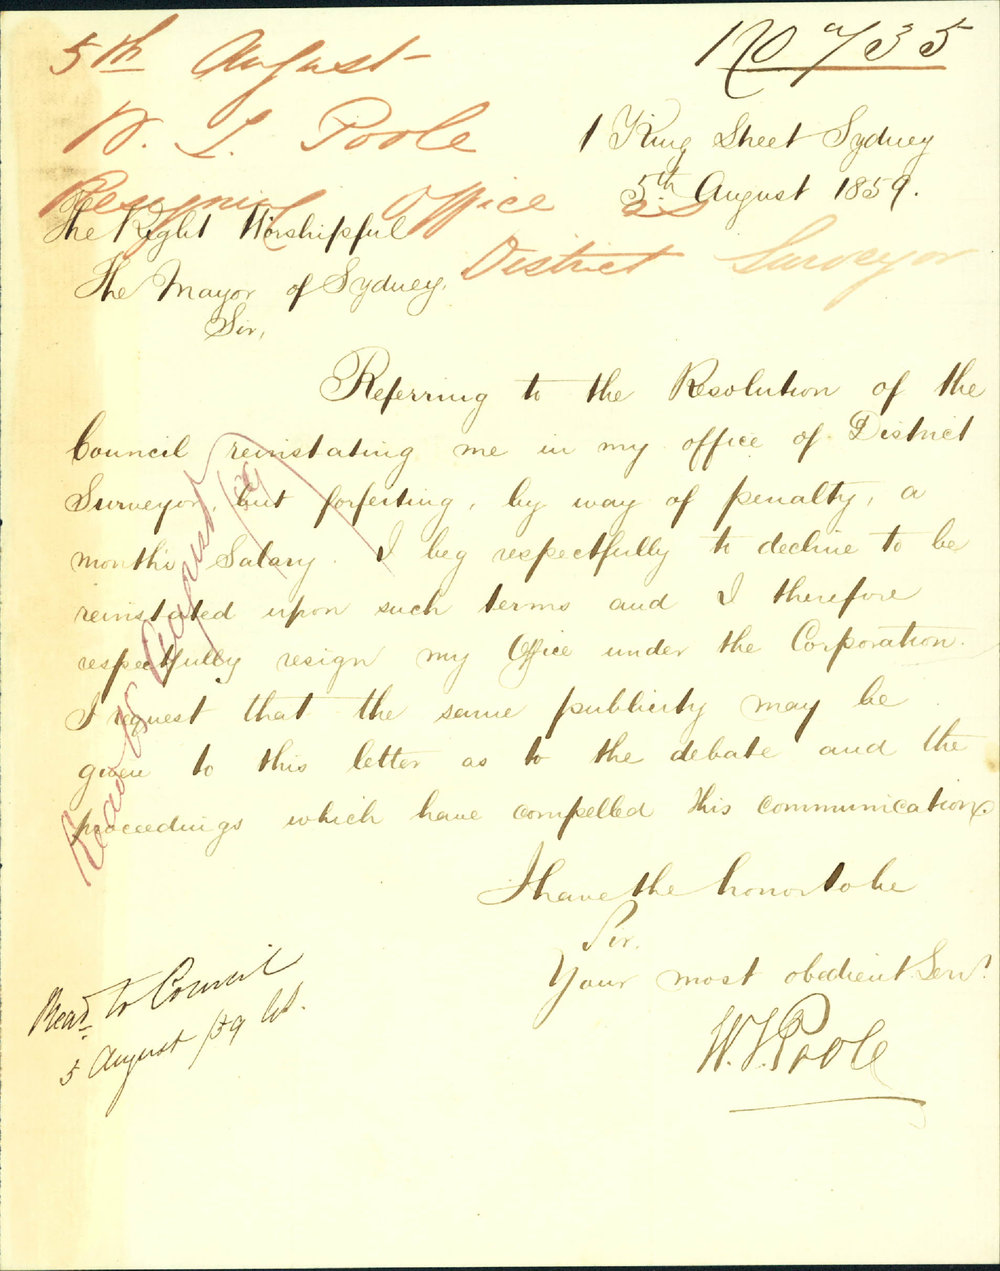 5th August
W. I. Poole
Resigning Office as
District Surveyor
No 735
1 King Street Sydney
5th August 1859.
The Right Worshipful
The Mayor of Sydney.
Sir,
Referring to the Resolution of the
Council reinstating me in my office of District
Surveyor, but forfeiting, by way of penalty, a
months Salary. I beg respectfully to decline to be
reinstated upon such terms and I therefore
respectfully resign my Office under the Corporation.
I request that the same publicity may be
given to this letter as to the debate and the
proceedings which have compelled this communication
I have the honor to be
Sir.
Your most obedient Servt.
W. I. Poole
Read to Council
5 August /59
Read August /59